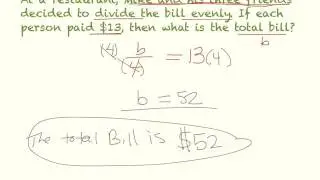 At a restaurant, Mike and his three friends
decided to divide the bill evenly. If each
person paid $13, then what is the total bill?
b
(4) b/(4) = 13(4)
b = 52
The total Bill is $52